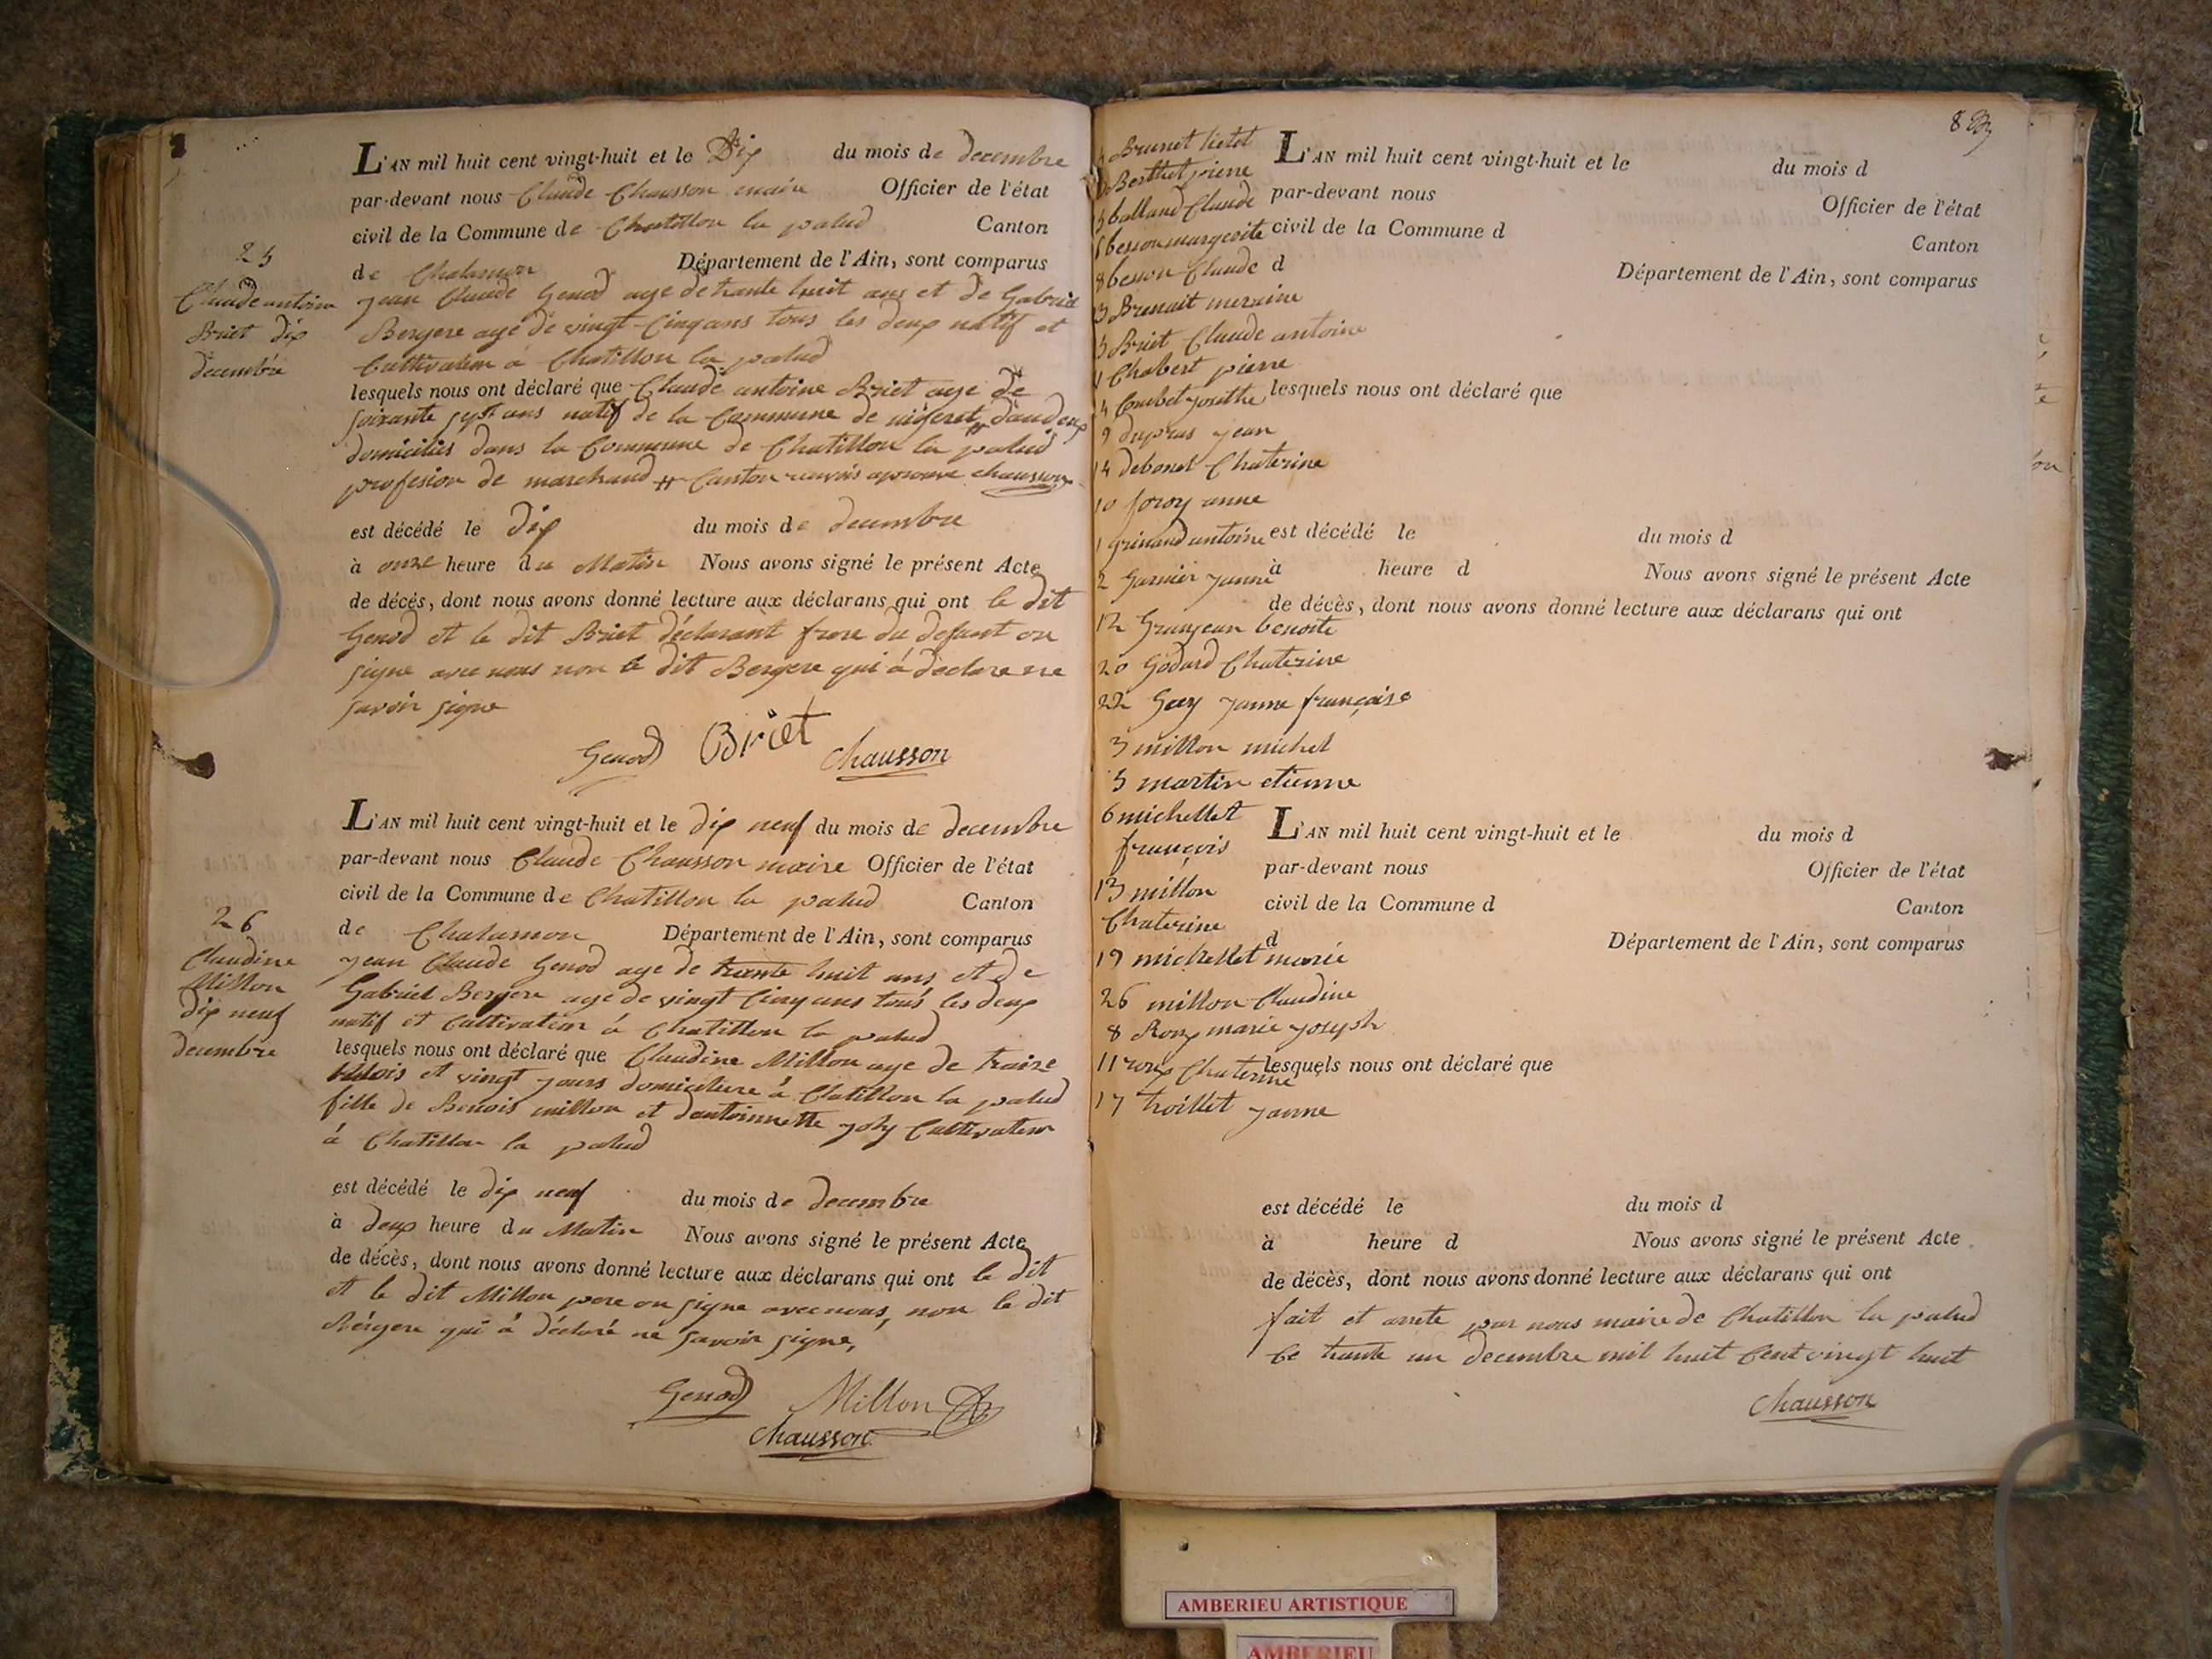 25
Claude antoine
Briet dix
decembre
L'AN mil huit cent vingt-huit et le Dix du mois de decembre
par-devant nous Claude Chausson maire Officier de l'état
civil de la Commune de Chatillon la palud Canton
de Chalamon Département de l'Ain, sont comparus
jean Claude Genod age de trante huit ans et de Gabriel
Bergere agé de vingt-Cinq ans tous les deux natif et
Cultivateur à Chatillon la palud
lesquels nous ont déclaré que Claude antoine Briet age de
soixante sept ans natif de la Commune de
domicilies dans la Commune de Chatillon la palud
profesion de marchand # Canton aprouve chausson
est décédé le dix du mois de decembre
à onze heure du Matin Nous avons signé le présent Acte
de décés, dont nous avons donné lecture aux déclarans qui ont le dit
Genod et le dit Briet déclarant frere du defunt on
signe avec nous non le dit Bergere qui à declare ne
savoir signe
Genod Briet chausson
26
Claudine
Millon
dix neuf
decembre
L'AN mil huit cent vingt-huit et le dix neuf du mois de decembre
par-devant nous Claude Chausson maire Officier de l'état
civil de la Commune de Chatillon la palud Canton
de Chalamon Département de l'Ain, sont comparus
jean Claude Genod age de trante huit ans et de
Gabriel Bergere age de vingt Cinq ans tous les deux
natif et Cultivateur à Chatillon la palud
lesquels nous ont déclaré que Claudine Millon age de traize
mois et vingt jours domiciliere à Chatillon la palud
fille de Benois millon et dantoinette joly Cultivateur
à Chatillon la palud
est décédé le dix neuf du mois de decembre
à deux heure du Matin Nous avons signé le présent Acte
de décès, dont nous avons donné lecture aux déclarans qui ont le dit
et le dit Millon pere on signe avec nous, non le dit
Bérgere qui à déclaré ne savoir signe,
Genod Millon
chausson
8
Brunet
Berthet pierre
balland Claude
besson margerite
8 besson Claude
Brunait
Briet Claude antoine
Chabert pierre
4 Combet josithe
9 dupras jean
14 debonet Chaterine
10 foroy anne
1 grinand antoine
2 Garnier janne
12 Granjean benoite
20 Godard Chaterine
22 Gay janne françoise
3 millon michel
5 martin etienne
6 michellet
françois
13 millon
Chaterine
19 michellet marie
26 millon Claudine
8 Roux marie joseph
11 roux Chaterine
17 troillet janne
L'AN mil huit cent vingt-huit et le du mois d
par-devant nous Officier de l'état
civil de la Commune d Canton
d Département de l'Ain, sont comparus
lesquels nous ont déclaré que
est décédé le du mois d
à heure d Nous avons signé le présent Acte
de décès, dont nous avons donné lecture aux déclarans qui ont
L'AN mil huit cent vingt-huit et le du mois d
par-devant nous Officier de l'état
civil de la Commune d Canton
d Département de l'Ain, sont comparus
lesquels nous ont déclaré que
est décédé le du mois d
à heure d Nous avons signé le présent Acte
de décès, dont nous avons donné lecture aux déclarans qui ont
fait et arrete par nous maire de Chatillon la palud
Ce trante un decembre mil huit Cent vingt huit
chausson
AMBERIEU ARTISTIQUE
AMBERIEU